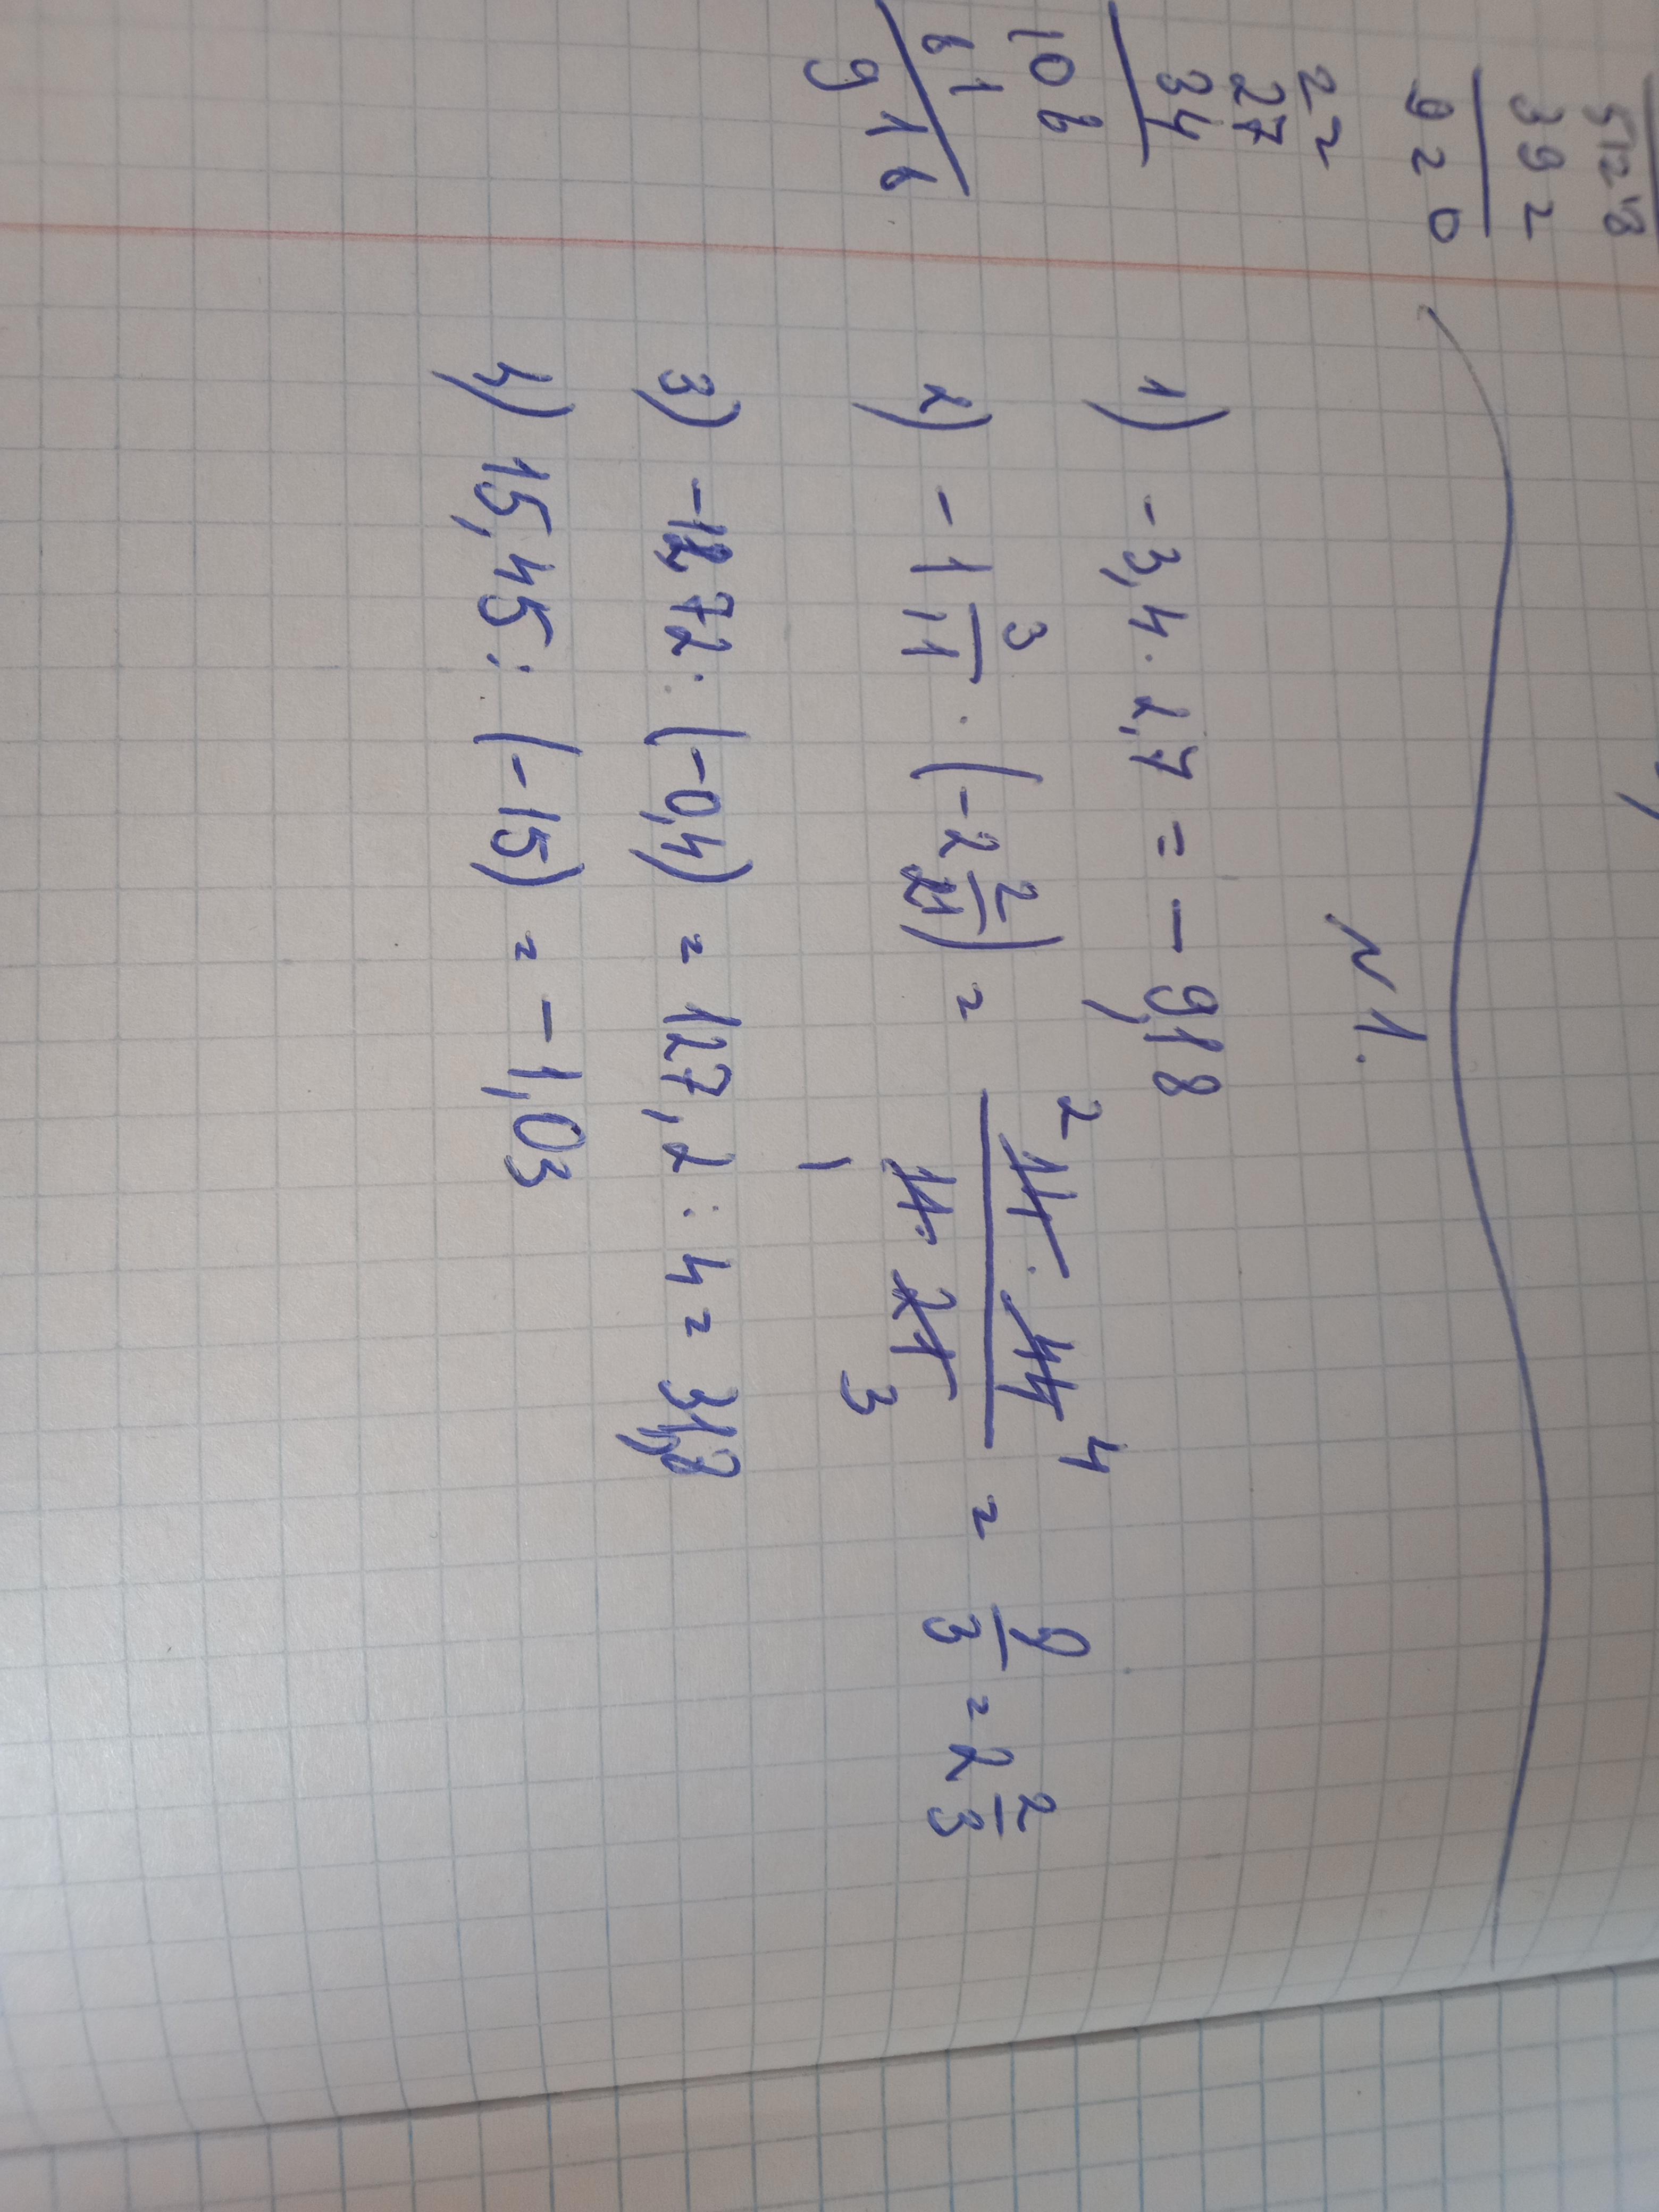 392
920
N 1.
22
27
34
108
81
918
1) -3,4 · 2,7 = - 9,18
2) -1 3/11 · (-2 2/21) = 2 14 · 44 4 / 1 11 · 21 3 = 8/3 = 2 2/3
3) -12,72 : (-0,4) = 127,2 : 4 = 31,8
4) 15,45 : (-15) = -1,03